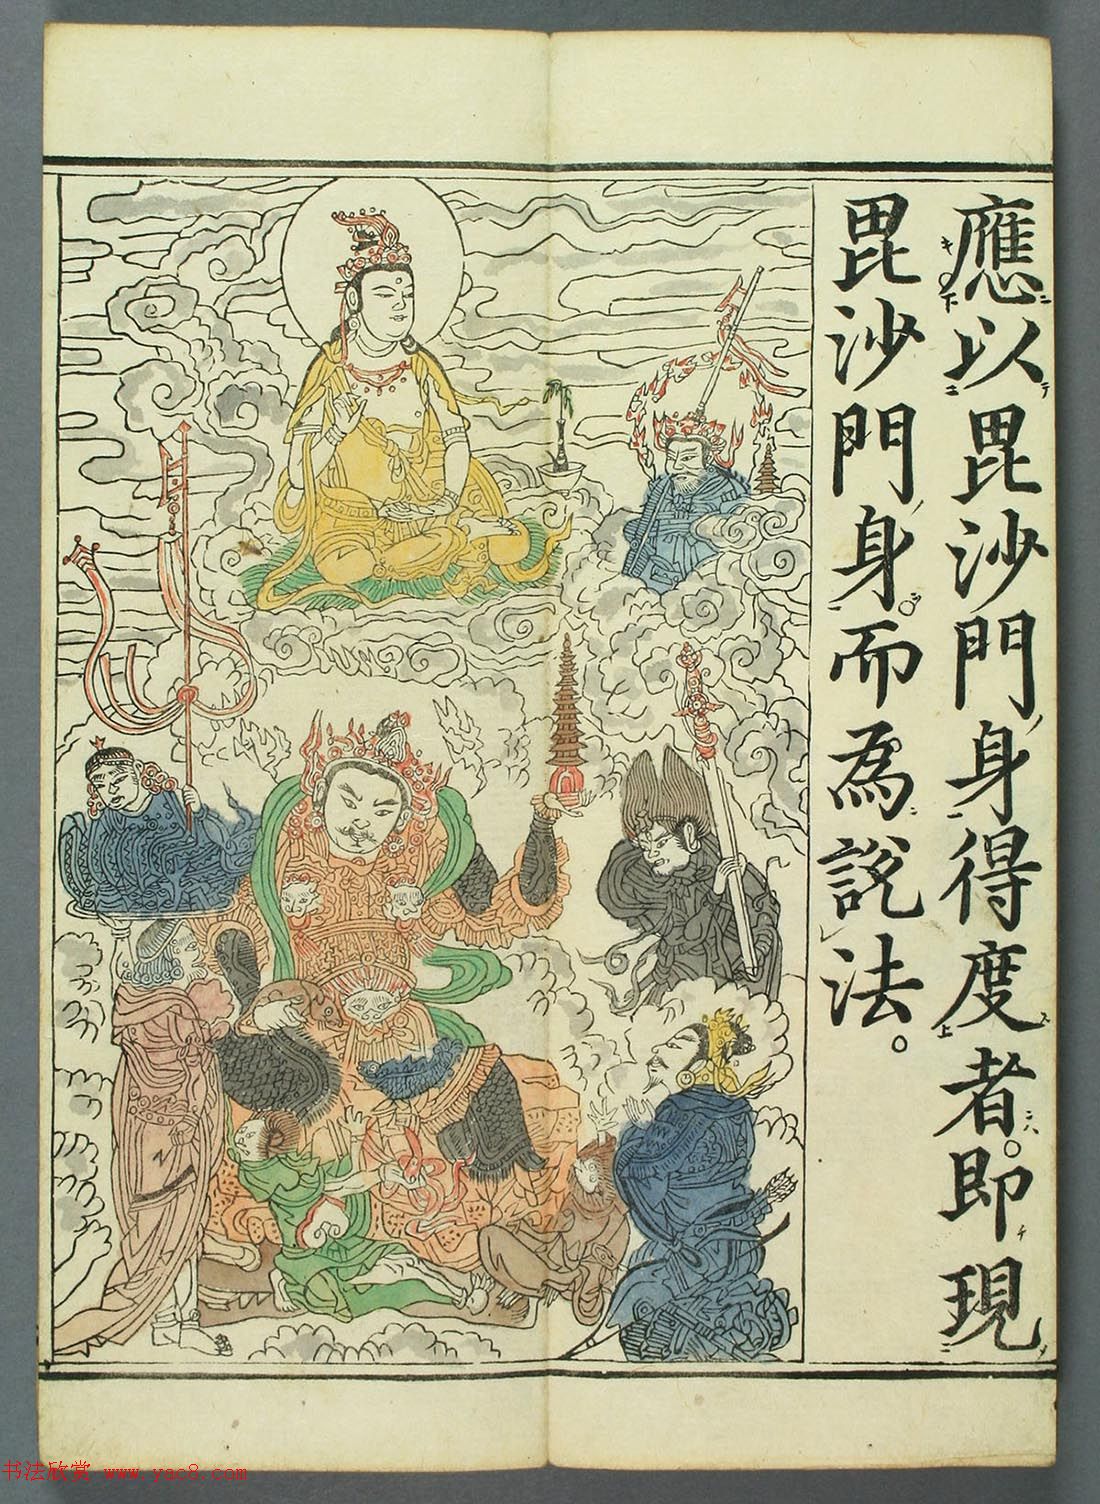 應以毘沙門身得度者。即現
毘沙門身。而為說法。
书法欣赏 www.yac8.com